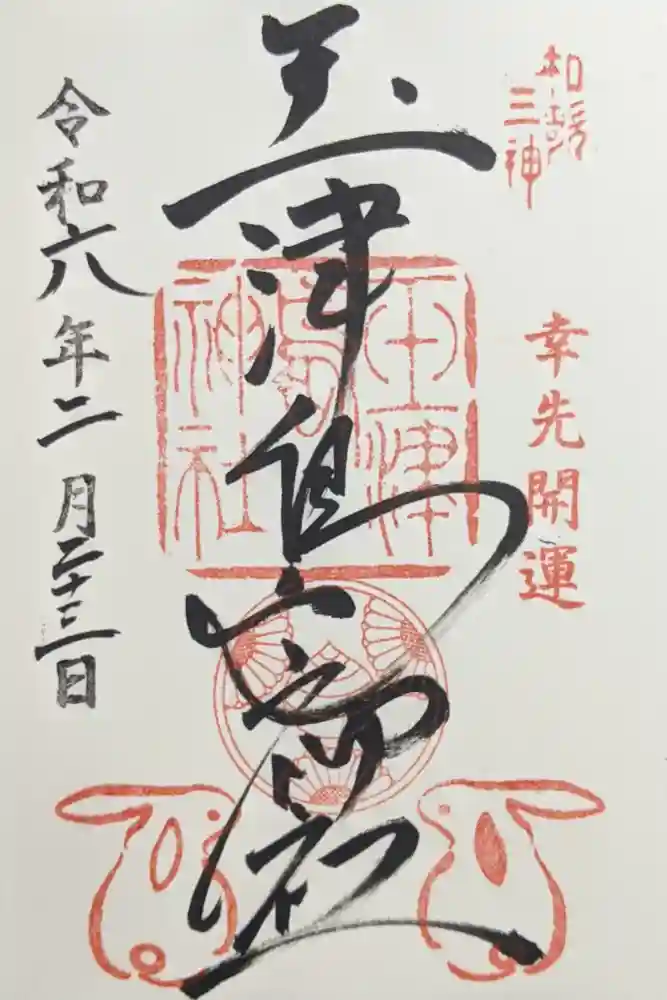 和歌
三神
幸先開運
玉津島
玉津島神社
令和六年二月二十三日